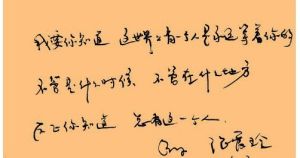 我要你知道 这世界上有一个人是永远等着你的
不管是什么时候 不管在什么地方
反正你知道 总有这一个人